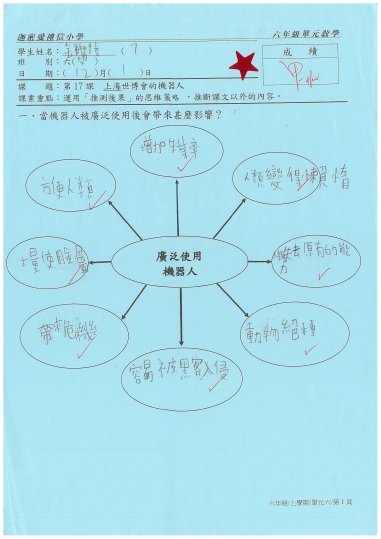 迦密愛禮信小學
六年級單元教學
學生姓名：
( 7 )
成 績
班 別：六( )
甲
日 期：( 12 )月( 1 )日
課 題：第 17 課 上海世博會的機器人
課業重點：運用「推測後果」的思維策略，推斷課文以外的內容。
一．當機器人被廣泛使用後會帶來甚麼影響？
增加失業率
方便人類
人類變得懶惰
大量使
廣泛使用
機器人
失去原有的能
力
帶來危機
動物絕種
容易被黑客入侵
六年級/上學期/單元六/第 1 頁